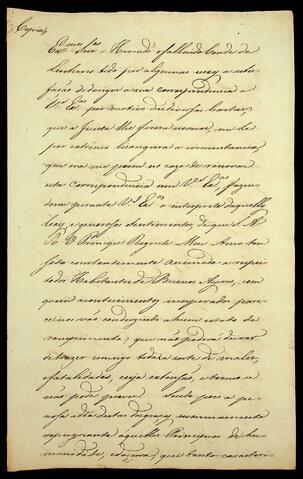 Copia
Ex.mos Snr.es = Havendo o fallecido Conde de
Linhares tido por algumas vezes a satis-
fação de dirigir a sua correspondencia a
V.as Ex.as por motivo de diversas Cartas,
que a Junta lhe fizera escrever, me he
por extremo lisongeira a circunstancia,
que ora me poem no cazo de renovar
esta Correspondencia com V.as Ex.as, fazen-
dome perante V.as Ex.as o interprete daquelles
leaes e generosos sentimentos, de que S. A.
R. o Principe Regente Meu Amo tem
sido constantemente animado a respei-
to dos Habitantes de Buenos Ayres, com
quem acontecimentos inesperados pare-
cem nos vão conduzindo a hum estado de
rompimento, que não poderá deixar
de trazer comsigo toda a sorte de males,
e fatalidades, cuja extensão, e termo se
não pode prever. Sendo pois a pe-
noza idéa destas desgraças summamente
repugnante aquelles Principios de hu-
manidade, e doçura, que tanto caracteri-